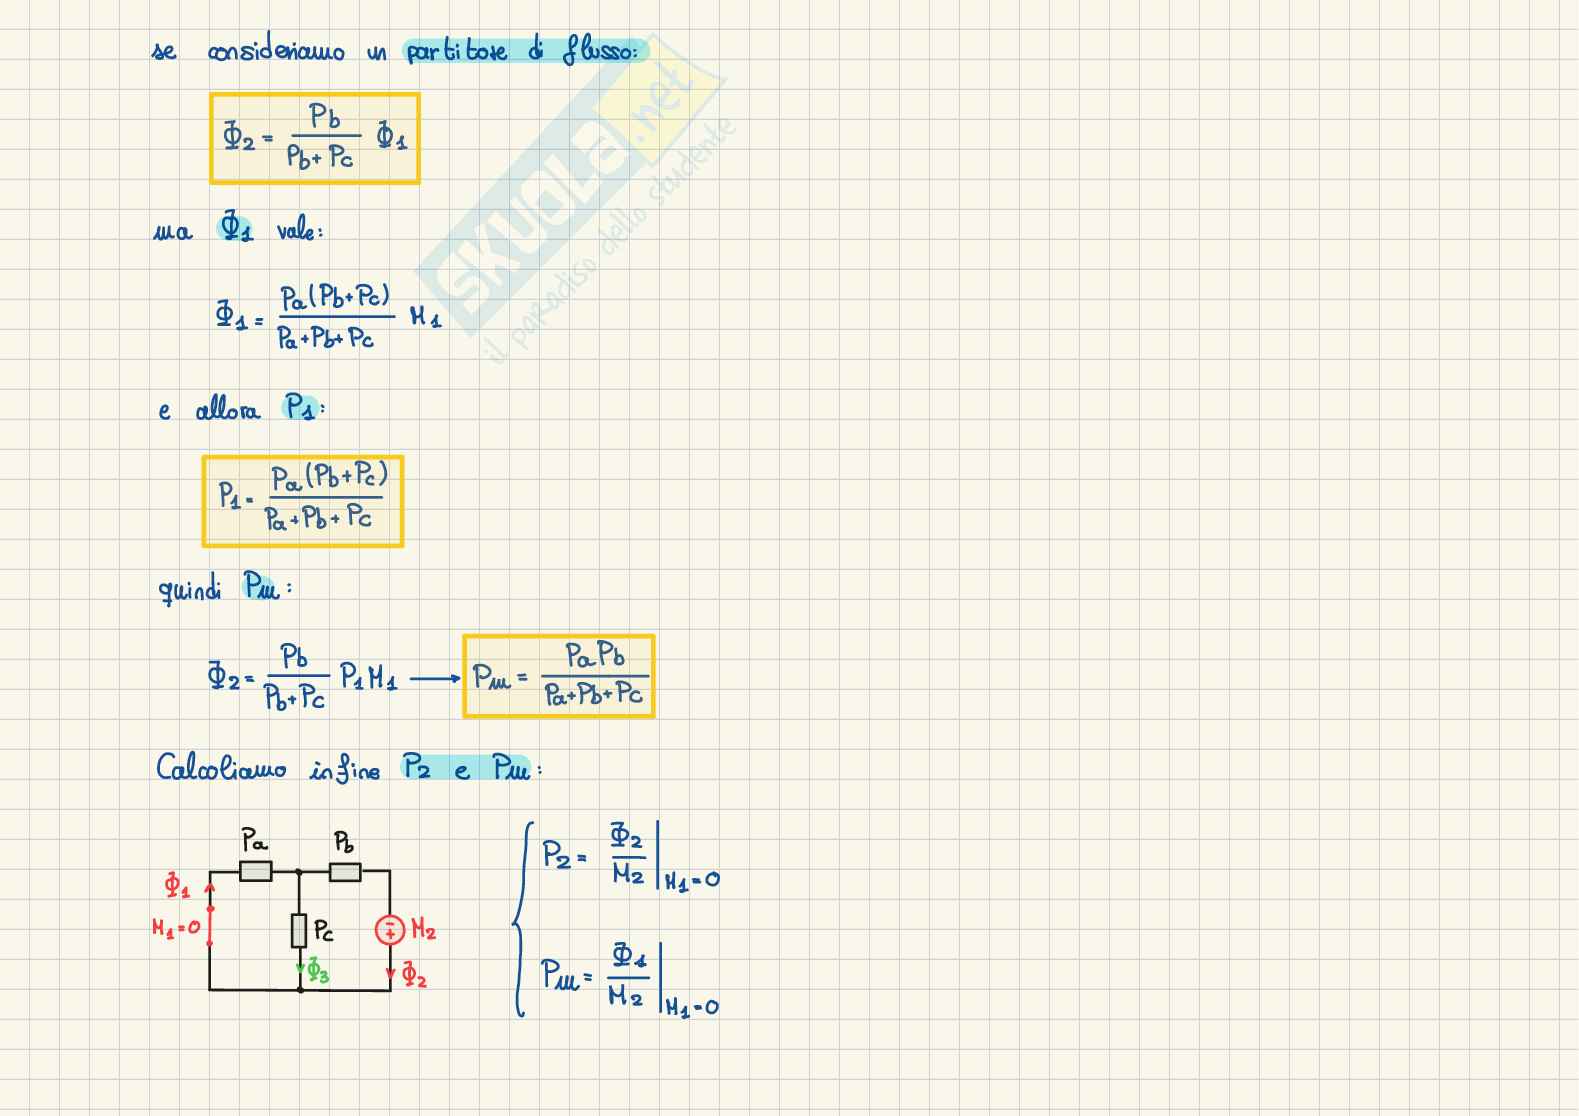 se consideriamo un partitore di flusso:
Φ2 = Pb / (Pb + Pc) Φ1
ma Φ1 vale:
Φ1 = Pa (Pb + Pc) / (Pa + Pb + Pc) M1
e allora P1:
P1 = Pa (Pb + Pc) / (Pa + Pb + Pc)
quindi Pm:
Φ2 = Pb / (Pb + Pc) P1 M1 → Pm = Pa Pb / (Pa + Pb + Pc)
Calcoliamo infine P2 e Pm:
Pa Pb
Φ1
M1 = 0 Pc - + M2
Φ3 Φ2
P2 = Φ2 / M2 | M1 = 0
Pm = Φ1 / M2 | M1 = 0
SKUOLA.net
il paradiso dello studente